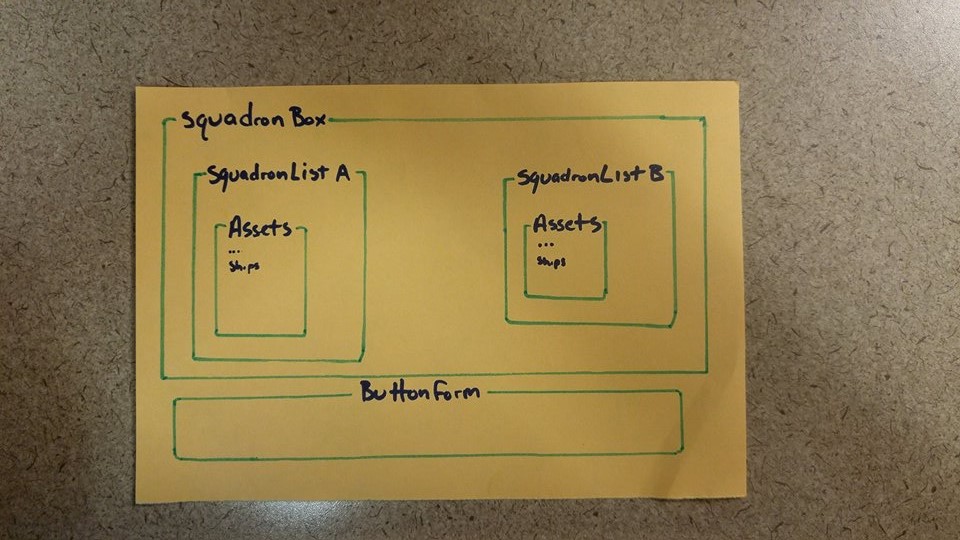 squadron Box
SquadronList A
Assets
...
ships
SquadronList B
Assets
...
ships
Button Form